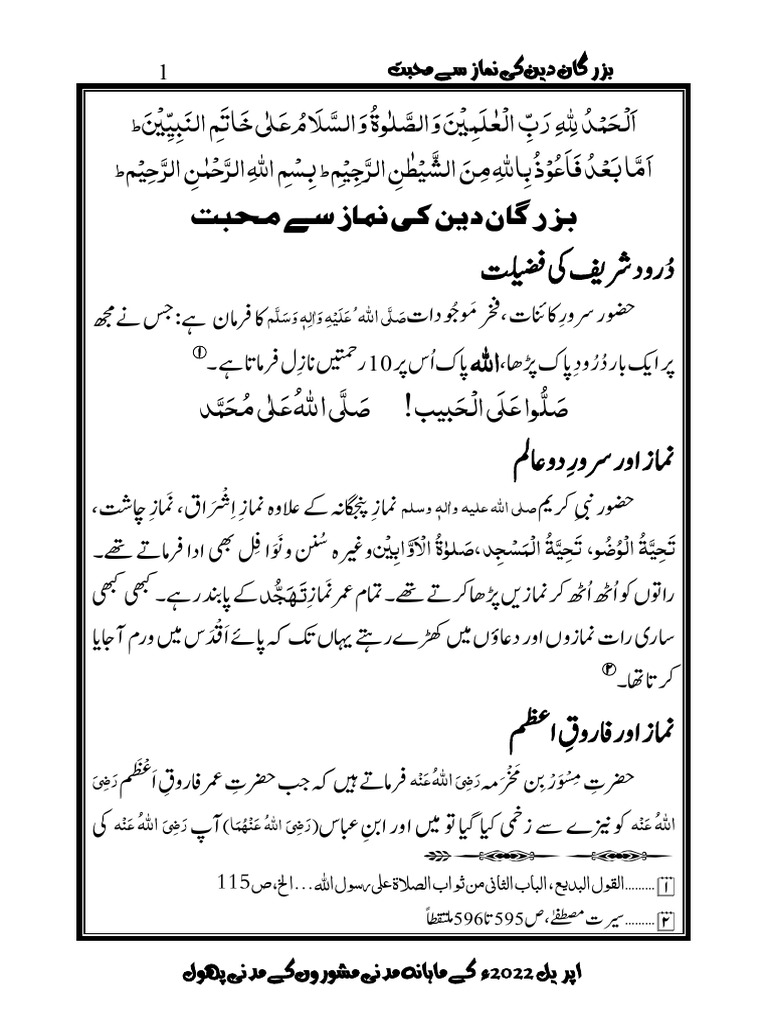 بزرگان دین کی نماز سے محبت 1
اَلْحَمْدُ لِلّٰهِ رَبِّ الْعٰلَمِیْنَ وَ الصَّلٰوةُ وَ السَّلَامُ عَلٰی خَاتَمِ النَّبِیِّیْنَ ط
اَمَّا بَعْدُ فَاَعُوْذُ بِاللهِ مِنَ الشَّیْطٰنِ الرَّجِیْمِ ط بِسْمِ اللهِ الرَّحْمٰنِ الرَّحِیْمِ ط
بزرگان دین کی نماز سے محبت
دُرود شریف کی فضیلت
حضور سرورِ کائنات، فخر مَوجُودات صَلَّی اللهُ عَلَیْهِ وَاٰلِهٖ وَسَلَّم کا فرمان ہے: جس نے مجھ
پر ایک بار دُرُودِ پاک پڑھا، الله پاک اُس پر 10 رحمتیں نازِل فرماتا ہے۔ ①
صَلُّوا عَلَی الْحَبِیب! صَلَّی اللهُ عَلٰی مُحَمَّد
نماز اور سرورِ دو عالم
حضور نبیِ کریم صلی الله علیه واٰلهٖ وسلم نمازِ پنجگانہ کے علاوہ نمازِ اِشْرَاق، نَمازِ چاشت،
تَحِیَّةُ الْوُضُو، تَحِیَّةُ الْمَسْجِد، صَلوٰةُ الْاَوَّابِیْن وغیرہ سُنن و نَوَافِل بھی ادا فرماتے تھے۔
راتوں کو اُٹھ اُٹھ کر نمازیں پڑھا کرتے تھے۔ تمام عمر نَمازِ تَہَجُّد کے پابند رہے۔ کبھی کبھی
ساری رات نمازوں اور دعاؤں میں کھڑے رہتے یہاں تک کہ پائے اَقْدَس میں ورم آجایا
کرتا تھا۔ ②
نماز اور فاروقِ اعظم
حضرتِ مِسْوَر بِن مَخْرَمہ رَضِیَ اللهُ عَنْه فرماتے ہیں کہ جب حضرتِ عمر فاروقِ اَعْظَم رَضِیَ
اللهُ عَنْه کو نیزے سے زخمی کیا گیا تو میں اور ابنِ عباس (رَضِیَ اللهُ عَنْهُمَا) آپ رَضِیَ اللهُ عَنْه کی
۱ ......... القول البدیع، الباب الثانی من ثواب الصلاة علی رسول الله... الخ، ص 115
۲ ......... سیرت مصطفےٰ، ص 595 تا 596 ملتقطاً
اپریل 2022ء کے ماہانہ مدنی مشوروں کے مدنی پھول